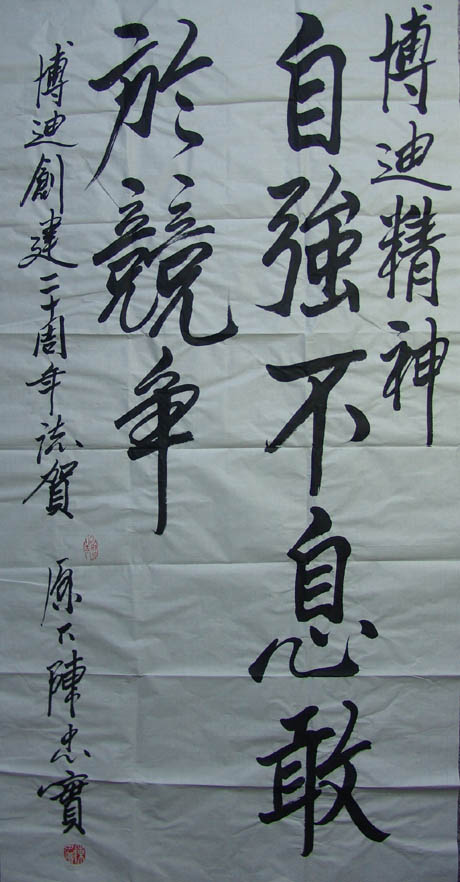 博迪精神
自強不息敢
於競争
博迪創建二十周年誌賀
原下陳忠實